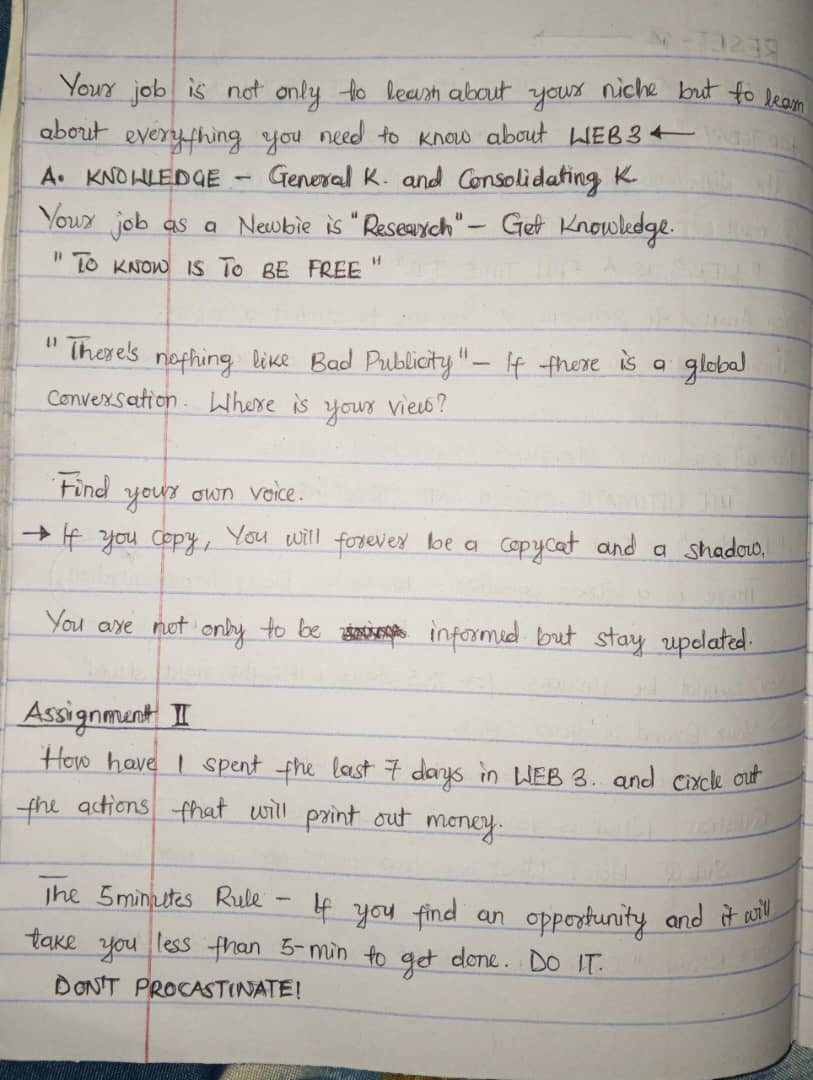 Your job is not only to learn about your niche but to learn
about everything you need to know about WEB3 ←
A. KNOWLEDGE - General K. and Consolidating K
Your job as a Newbie is "Research" - Get Knowledge.
" TO KNOW IS TO BE FREE "
" There's nothing like Bad Publicity" - If there is a global
Conversation. Where is your view?
Find your own voice.
→ If you copy, You will forever be a copycat and a shadow.
You are not only to be informed but stay updated.
Assignment II
How have I spent the last 7 days in WEB 3. and circle out
the actions that will print out money.
The 5minutes Rule - If you find an opportunity and it will
take you less than 5-min to get done. DO IT.
DON'T PROCASTINATE!